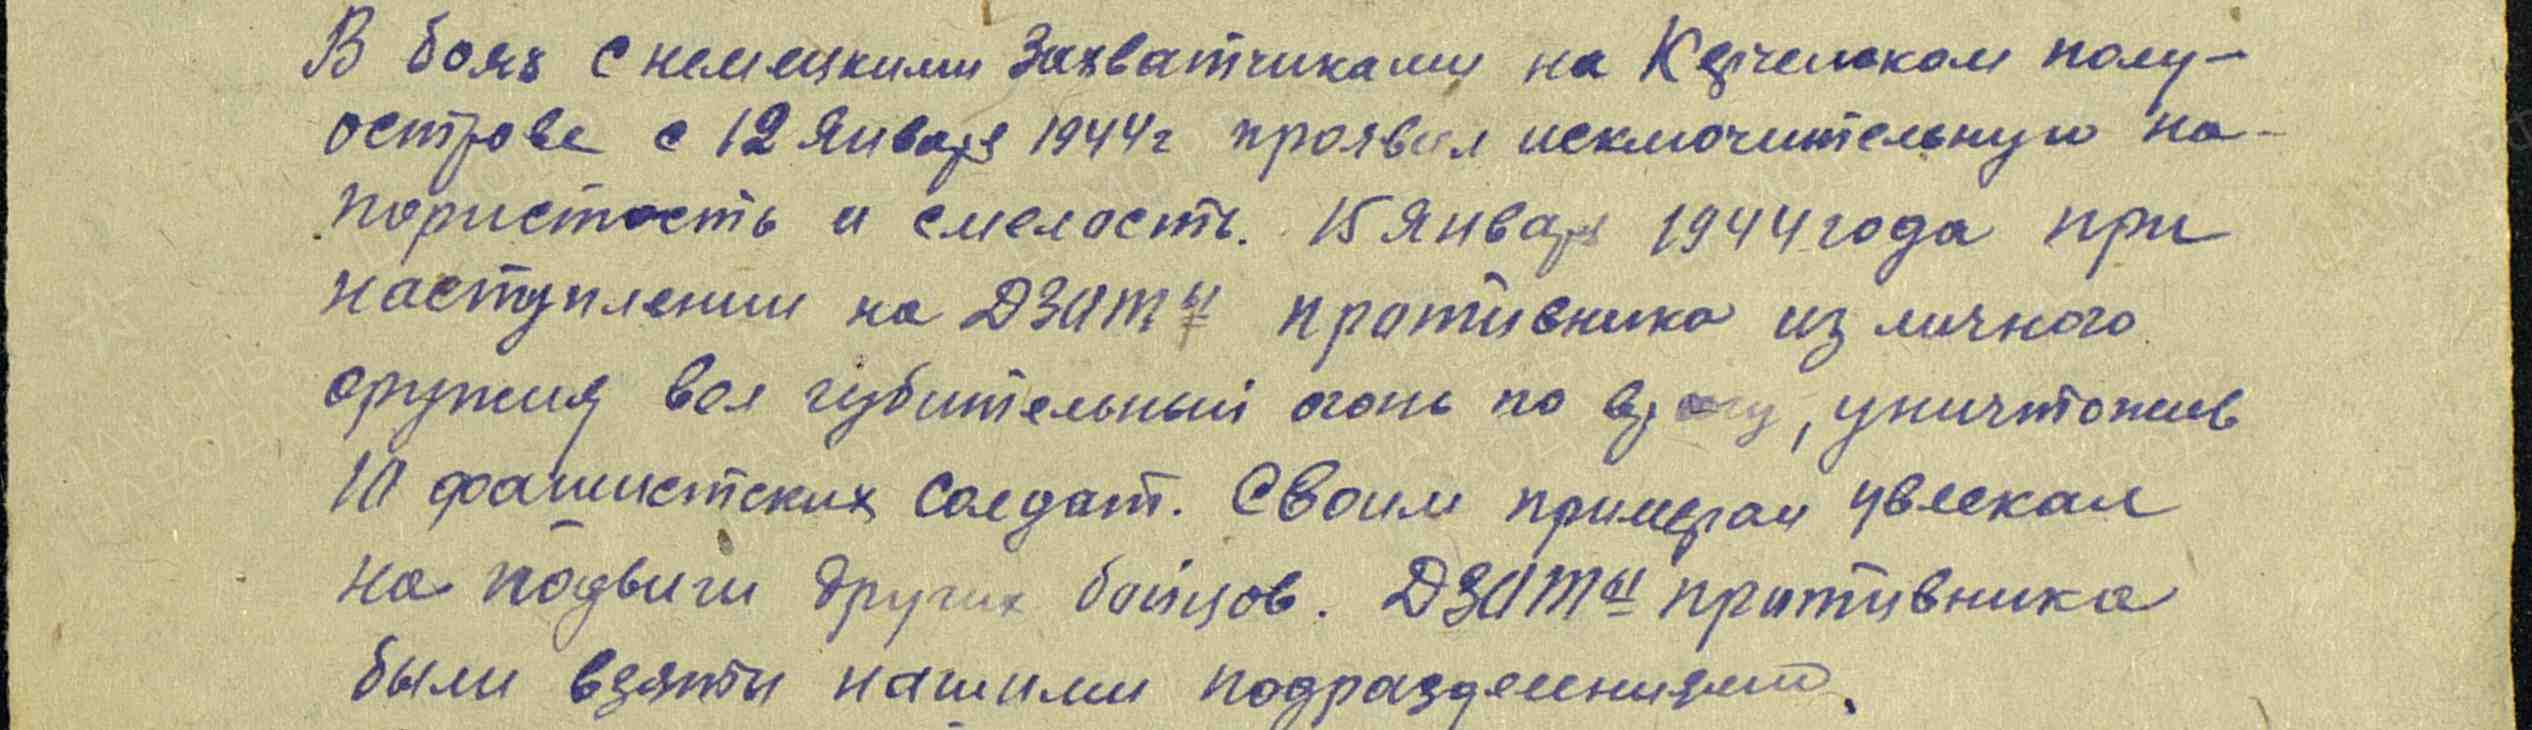 В боях с немецкими захватчиками на Керченском полу-
острове с 12 Января 1944г проявил исключительную на-
пористость и смелость. 15 Января 1944 года при
наступлении на ДЗОТы противника из личного
оружия вел губительный огонь по врагу, уничтожив
10 фашистских солдат. Своим примером увлекал
на подвиги других бойцов. ДЗОТы противника
были взяты нашими подразделениями.